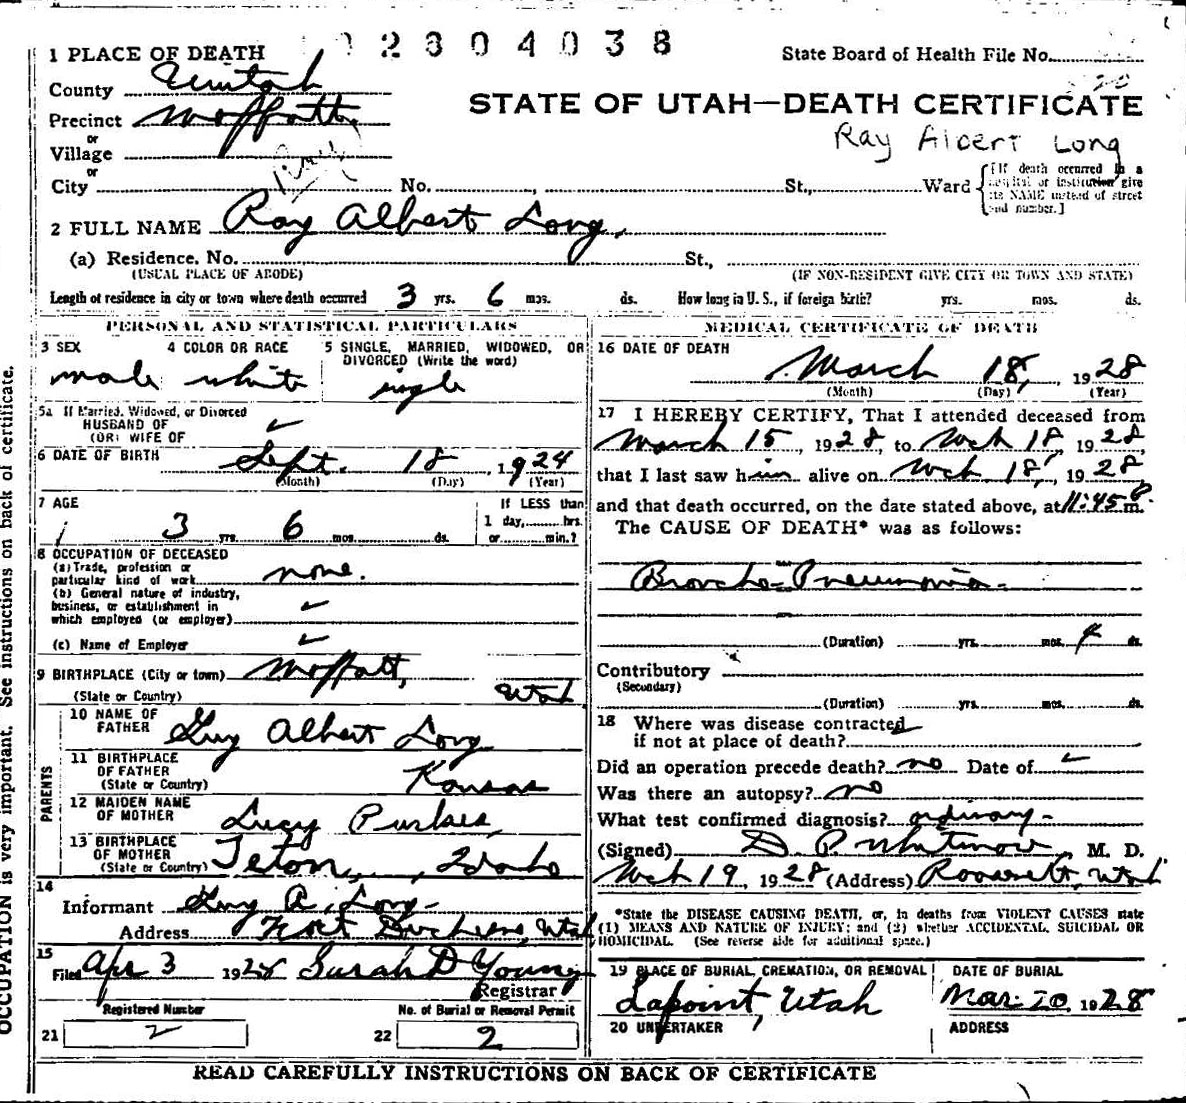 2 3 0 4 0 3 8
State Board of Health File No.
1 PLACE OF DEATH
County Uintah
STATE OF UTAH—DEATH CERTIFICATE
Precinct Moffatt
or
Village
Ray Albert Long
or
City No. , St., Ward
[If death occurred in a hospital or institution give its NAME instead of street and number.]
2 FULL NAME Ray Albert Long.
(a) Residence. No. St.,
(USUAL PLACE OF ABODE) (IF NON-RESIDENT GIVE CITY OR TOWN AND STATE)
Length of residence in city or town where death occurred 3 yrs. 6 mos. ds. How long in U. S., if foreign birth? yrs. mos. ds.
PERSONAL AND STATISTICAL PARTICULARS
3 SEX male
4 COLOR OR RACE white
5 SINGLE, MARRIED, WIDOWED, OR DIVORCED (Write the word) single
5a If Married, Widowed, or Divorced
HUSBAND OF
(OR) WIFE OF
6 DATE OF BIRTH Sept. 18, 1924
(Month) (Day) (Year)
7 AGE 3 yrs. 6 mos. ds.
If LESS than
1 day, hrs.
or min.?
8 OCCUPATION OF DECEASED
(a) Trade, profession or
particular kind of work none.
(b) General nature of industry,
business, or establishment in
which employed (or employer)
(c) Name of Employer
9 BIRTHPLACE (City or town) Moffatt,
(State or Country) Utah
PARENTS
10 NAME OF
FATHER Guy Albert Long
11 BIRTHPLACE
OF FATHER
(State or Country) Kansas
12 MAIDEN NAME
OF MOTHER Lucy
13 BIRTHPLACE
OF MOTHER
(State or Country) Teton, Idaho
14
Informant Guy A. Long
Address Fort Duchesne, Utah
15
Filed Apr 3 1928 Sarah D Young
Registrar
Registered Number
21 2
No. of Burial or Removal Permit
22 2
MEDICAL CERTIFICATE OF DEATH
16 DATE OF DEATH
March 18, 1928
(Month) (Day) (Year)
17 I HEREBY CERTIFY, That I attended deceased from
March 15, 1928, to Mch 18, 1928
that I last saw him alive on Mch 18, 1928
and that death occurred, on the date stated above, at 11:45 P m.
The CAUSE OF DEATH* was as follows:
Broncho-Pneumonia-
(Duration) yrs. mos. 4 ds.
Contributory
(Secondary)
(Duration) yrs. mos. ds.
18 Where was disease contracted
if not at place of death?
Did an operation precede death? no Date of
Was there an autopsy? no
What test confirmed diagnosis? ordinary-
(Signed) D. P. Whitmore, M. D.
Mch 19, 1928 (Address) Roosevelt, Utah
*State the DISEASE CAUSING DEATH, or, in deaths from VIOLENT CAUSES state
(1) MEANS AND NATURE OF INJURY; and (2) whether ACCIDENTAL, SUICIDAL OR
HOMICIDAL. (See reverse side for additional space.)
19 PLACE OF BURIAL, CREMATION, OR REMOVAL
Lapoint, Utah
DATE OF BURIAL
Mar. 20, 1928
20 UNDERTAKER
ADDRESS
READ CAREFULLY INSTRUCTIONS ON BACK OF CERTIFICATE
OCCUPATION is very important. See instructions on back of certificate.